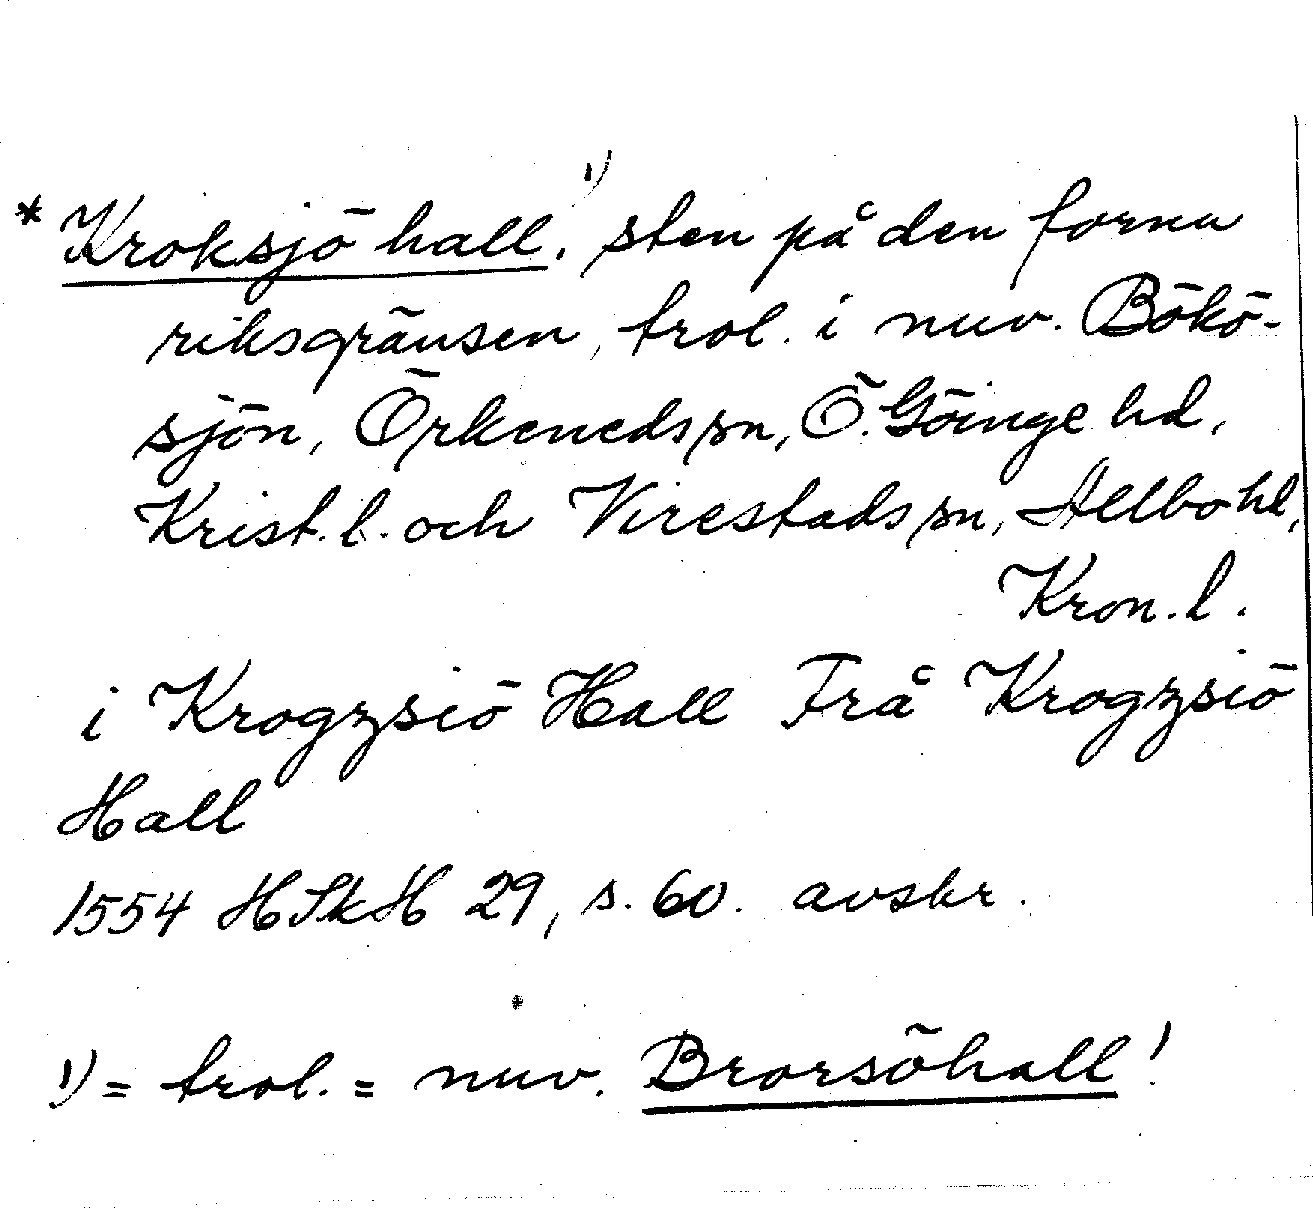 * Kroksjö hall,¹⁾ sten på den forna
riksgränsen, trol. i nuv. Bökö-
sjön, Örkeneds sn, Ö. Göinge hd,
Krist. l. och Virestads sn, Allbo hd,
Kron. l.
i Krogzsiö Hall Frå Krogzsiö
Hall
1554 HSkH 29, s. 60. avskr.
¹⁾ = trol. = nuv. Brorsöhall!